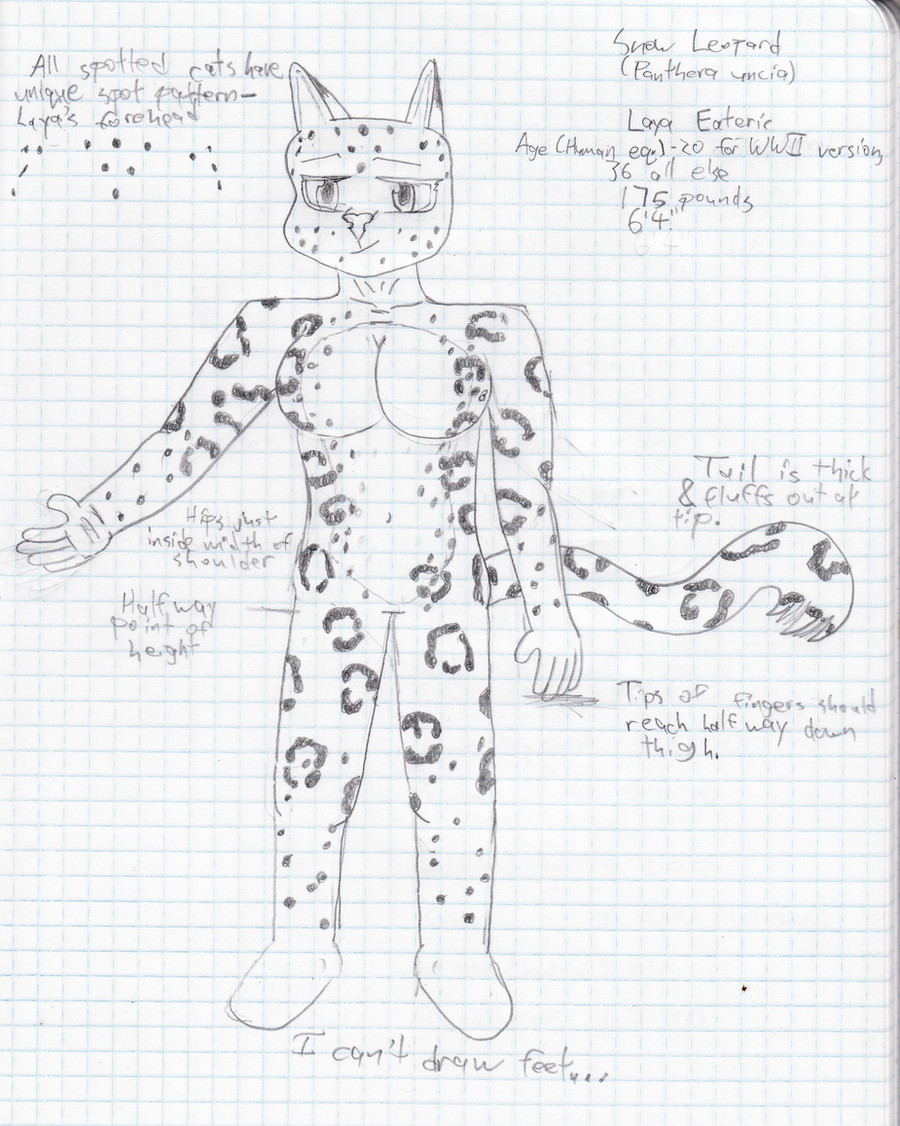 All spotted cats have
unique spot pattern-
Laya's forehead
Snow Leopard
(Panthera uncia)
Laya Exteric
Age (Human eqv)-20 for WWII version,
36 all else
175 pounds
6'4"
Tail is thick
& fluffs out at
tip.
Hips just
inside width of
shoulder
Halfway
point of
height
Tips of fingers should
reach halfway down
thigh.
I can't draw feet...